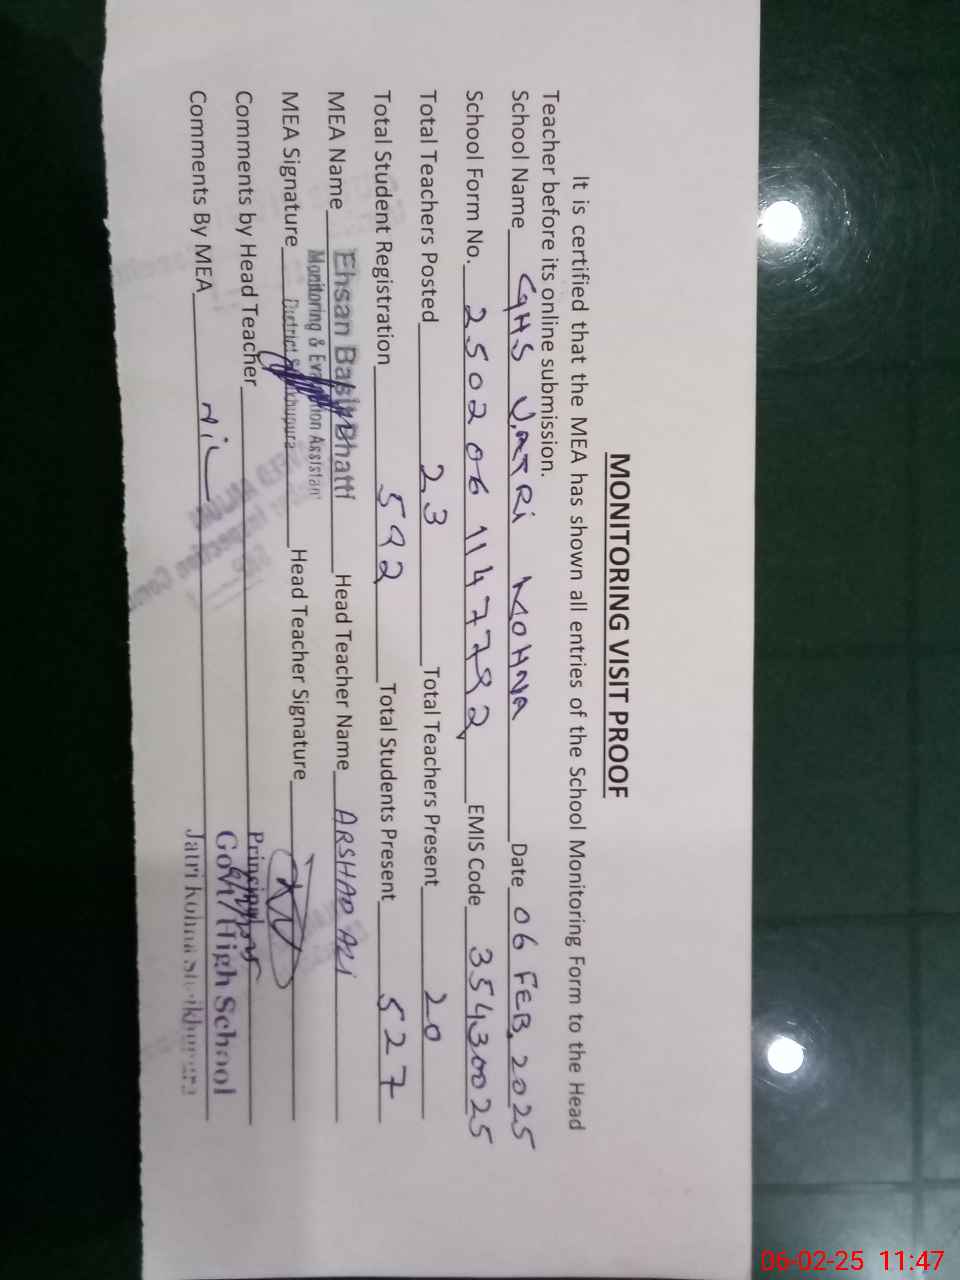 MONITORING VISIT PROOF
It is certified that the MEA has shown all entries of the School Monitoring Form to the Head
Teacher before its online submission.
School Name GHS JATRI KOHNA Date 06 FEB. 2025
School Form No. 2502061147792 EMIS Code 35430025
Total Teachers Posted 23 Total Teachers Present 20
Total Student Registration 592 Total Students Present 527
MEA Name Ehsan Basir Bhatti Head Teacher Name ARSHAD ALI
Monitoring & Evaluation Assistant
MEA Signature District Sheikhupura Head Teacher Signature
Comments by Head Teacher
Principal
Govt High School
Comments By MEA Nil
Jatri Kohna Sheikhupura
06-02-25 11:47